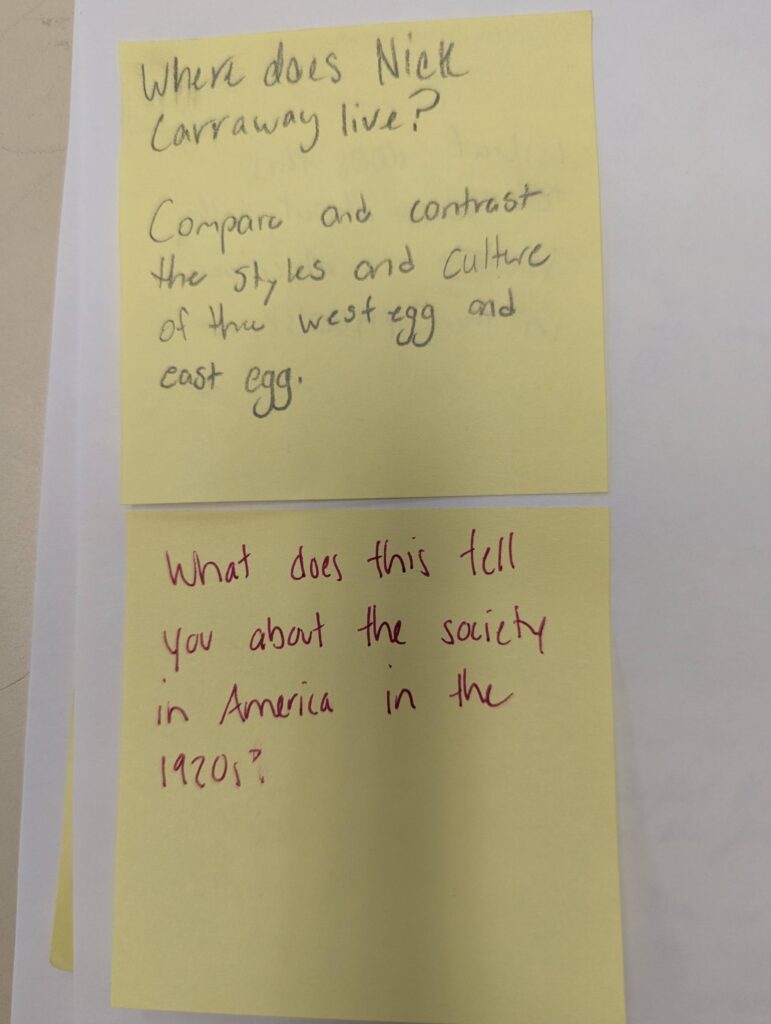 Where does Nick
Carraway live?
Compare and contrast
the styles and culture
of the west egg and
east egg.
What does this tell
you about the society
in America in the
1920s?